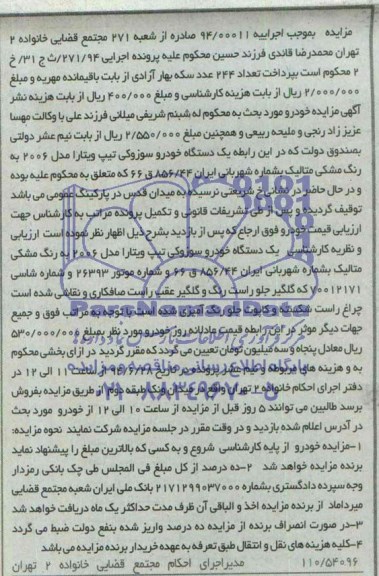 مزایده بموجب اجراییه ۹۴/۰۰۰۱۱ صادره از شعبه ۲۷۱ مجتمع قضایی خانواده ۲
تهران محمدرضا قائدی فرزند حسین محکوم علیه پرونده اجرایی ۲۷۱/۹۴/ث ج ۳۱/ خ
۲ محکوم است بپرداخت تعداد ۲۴۴ عدد سکه بهار آزادی از بابت باقیمانده مهریه و مبلغ
۲/۰۰۰/۰۰۰ ریال از بابت هزینه کارشناسی و مبلغ ۴۰۰/۰۰۰ ریال از بابت هزینه نشر
آگهی مزایده خودرو مورد بحث به محکوم له شبنم شریفی میلانی فرزند علی با وکالت مهسا
عزیز زاد رنجی و ملیحه ربیعی و همچنین مبلغ ۲/۵۵۰/۰۰۰ ریال از بابت نیم عشر دولتی
بصندوق دولت که در این رابطه یک دستگاه خودرو سوزوکی تیپ ویتارا مدل ۲۰۰۶ به
رنگ مشکی متالیک بشماره شهربانی ایران ۸۵۶/۴۴ ق ۶۶ که متعلق به محکوم علیه بوده
و در حال حاضر در نشانی خ شریعتی نرسیده به میدان قدس در پارکینگ عمومی می باشد
توقیف گردیده و پس از طی تشریفات قانونی و تکمیل پرونده مراتب به کارشناس جهت
ارزیابی قیمت خودرو فوق ارجاع که پس از بازدید بشرح ذیل اظهار نظر نموده است ارزیابی
و نظریه کارشناسی یک دستگاه خودرو سوزوکی تیپ ویتارا مدل ۲۰۰۶ به رنگ مشکی
متالیک بشماره شهربانی ایران ۸۵۶/۴۴ ق ۶۶ و شماره موتور ۲۶۳۹۳ و شماره شاسی
۷۰۰۱۲۱۷۱ که گلگیر جلو راست رنگ و گلگیر عقب راست صافکاری و نقاشی شده است
چراغ راست شکسته و کاپوت جلو رنگ آمیزی شده است با توجه به مراتب فوق و جمیع
جهات دیگر موثر در این رابطه قیمت عادلانه روز خودرو مورد نظر بمبلغ ۵۳۰/۰۰۰/۰۰۰
ریال معادل پنجاه و سه میلیون تومان تعیین می گردد که مقرر گردید در ازای بخشی محکوم
به و هزینه های مربوطه و نیم عشر دولتی در تاریخ از ساعت ۱۱ الی ۱۲ در
دفتر اجرای احکام خانواده ۲ تهران واقع در طبقه دوم از طریق مزایده بفروش
برسد طالبین می توانند ۵ روز قبل از مزایده از ساعت ۱۰ الی ۱۲ از خودرو مورد بحث
در آدرس اعلام شده بازدید و در وقت مقرر در جلسه مزایده شرکت نمایند نحوه مزایده:
۱-مزایده خودرو از پایه کارشناسی شروع و به کسی که بالاترین مبلغ را پیشنهاد نماید
برنده مزایده خواهد شد ۲-ده درصد از کل مبلغ فی المجلس طی چک بانکی رمزدار
وجه سپرده دادگستری بشماره ۲۱۷۱۲۹۹۰۳۷۰۰۰ بانک ملی ایران شعبه مجتمع قضایی
میرداماد از برنده مزایده اخذ و الباقی آن ظرف مدت حداکثر یک ماه دریافت خواهد شد
۳-در صورت انصراف برنده از مزایده ده درصد واریز شده بنفع دولت ضبط می گردد
۴-کلیه هزینه های نقل و انتقال طبق تعرفه به عهده خریدار برنده مزایده می باشد
۱۱۰/۵۴۰۹۶ مدیر اجرای احکام مجتمع قضایی خانواده ۲ تهران